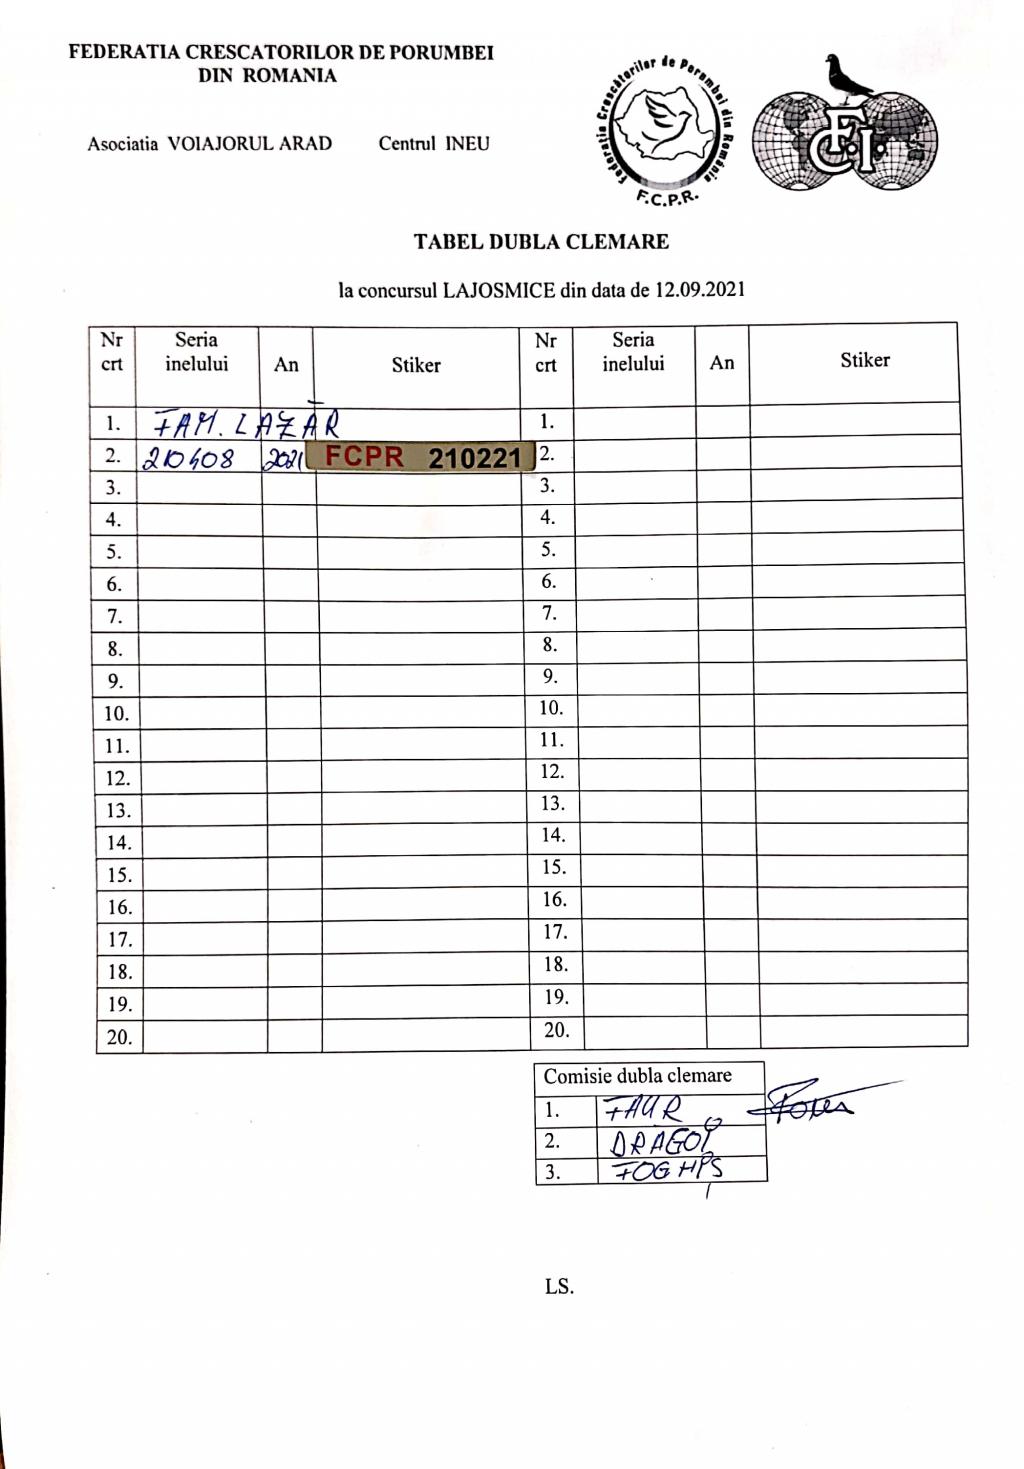 FEDERATIA CRESCATORILOR DE PORUMBEI
DIN ROMANIA
Asociatia VOIAJORUL ARAD Centrul INEU
Federatia Crescătorilor de Porumbei din România
F.C.P.R.
F.C.I.
TABEL DUBLA CLEMARE
la concursul LAJOSMICE din data de 12.09.2021
Nr crt Seria inelului An Stiker Nr crt Seria inelului An Stiker
1. FAM. LAZĂR 1.
2. 210408 2021 FCPR 210221 2.
3. 3.
4. 4.
5. 5.
6. 6.
7. 7.
8. 8.
9. 9.
10. 10.
11. 11.
12. 12.
13. 13.
14. 14.
15. 15.
16. 16.
17. 17.
18. 18.
19. 19.
20. 20.
Comisie dubla clemare
1. FAUR
2. DRAGOȘ
3.
LS.